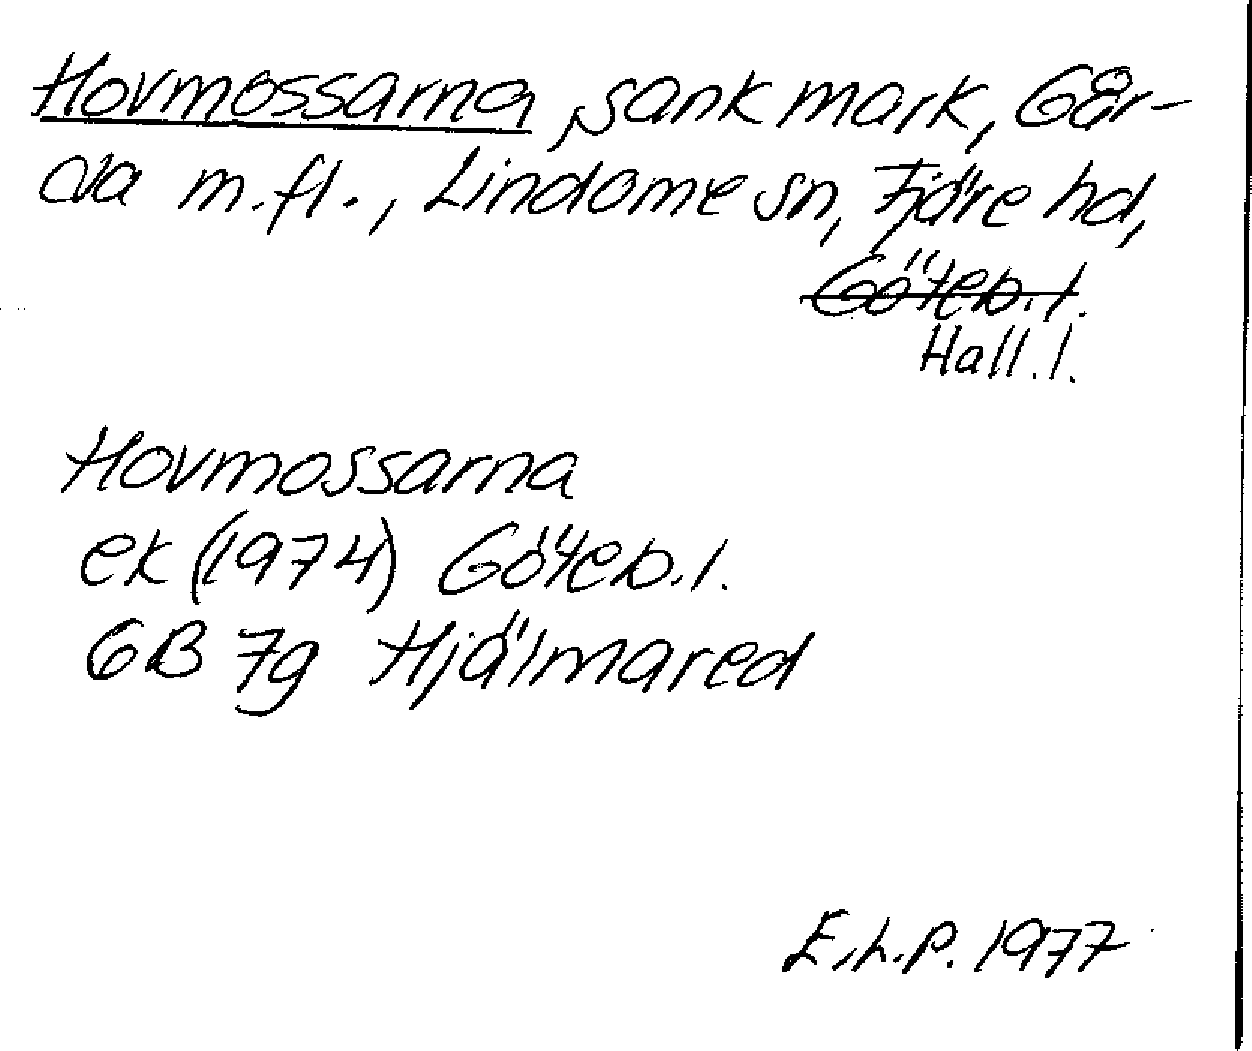 Hovmossarna, sank mark, Går-
da m.fl., Lindome sn, Fjäre hd,
Göteb.l.
Hall.l.
Hovmossarna
ek (1974) Göteb.l.
6B 7g Hjälmared
E.h.P. 1977